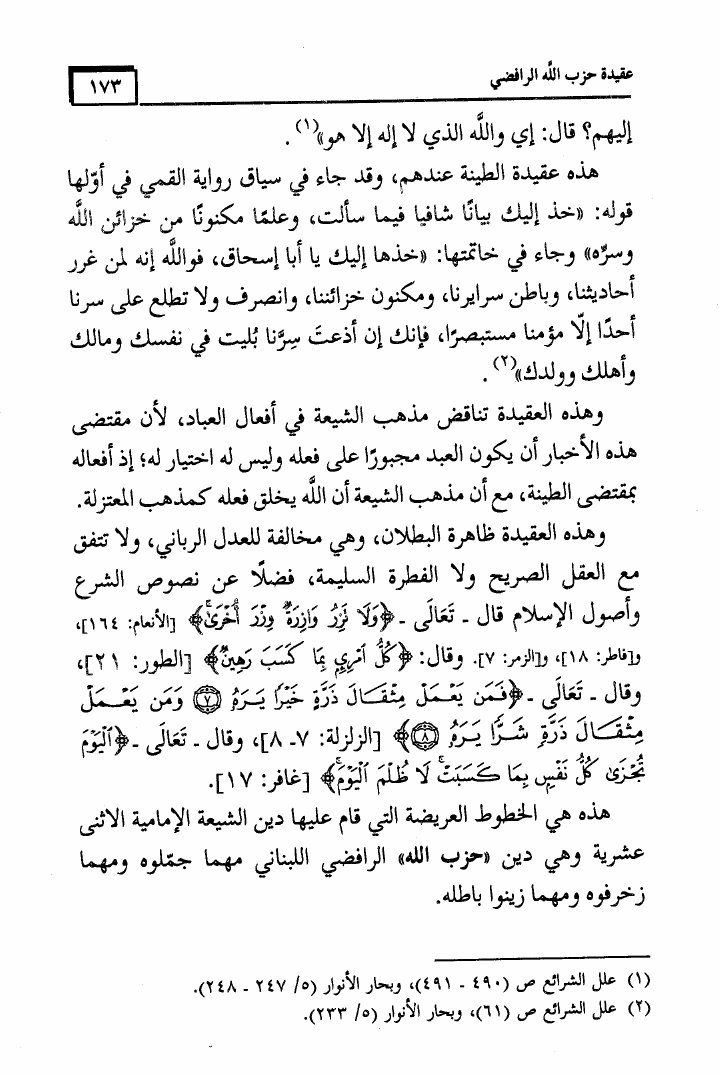 عقيدة حزب الله الرافضي
١٧٣
إليهم؟ قال: إي والله الذي لا إله إلا هو»(١).
هذه عقيدة الطينة عندهم، وقد جاء في سياق رواية القمي في أوّلها
قوله: «خذ إليك بيانًا شافيا فيما سألت، وعلمًا مكنونًا من خزائن الله
وسرِّه» وجاء في خاتمتها: «خذها إليك يا أبا إسحاق، فوالله إنه لمن غرر
أحاديثنا، وباطن سرايرنا، ومكنون خزائننا، وانصرف ولا تطلع على سرنا
أحدًا إلّا مؤمنا مستبصرًا، فإنك إن أذعتَ سِرَّنا بُليت في نفسك ومالك
وأهلك وولدك»(٢).
وهذه العقيدة تناقض مذهب الشيعة في أفعال العباد، لأن مقتضى
هذه الأخبار أن يكون العبد مجبورًا على فعله وليس له اختيار له؛ إذ أفعاله
بمقتضى الطينة، مع أن مذهب الشيعة أن الله يخلق فعله كمذهب المعتزلة.
وهذه العقيدة ظاهرة البطلان، وهي مخالفة للعدل الرباني، ولا تتفق
مع العقل الصريح ولا الفطرة السليمة، فضلًا عن نصوص الشرع
وأصول الإسلام قال ـ تَعَالَى ـ ﴿وَلَا نَزِرُ وَازِرَةٌ وِزْرَ أُخْرَىٰ﴾ [الأنعام: ١٦٤]،
و[فاطر: ١٨]، و[الزمر: ٧]. وقال: ﴿كُلُّ امْرِيٍ بِمَا كَسَبَ رَهِينٌ﴾ [الطور: ٢١]،
وقال ـ تَعَالَى ـ ﴿فَمَن يَعْمَلْ مِثْقَالَ ذَرَّةٍ خَيْرًا يَرَهُ ٧ وَمَن يَعْمَلْ
مِثْقَالَ ذَرَّةٍ شَرًّا يَرَهُ ٨﴾ [الزلزلة: ٧ـ ٨]، وقال ـ تَعَالَى ـ ﴿الْيَوْمَ
تُجْزَىٰ كُلُّ نَفْسٍ بِمَا كَسَبَتْ لَا ظُلْمَ الْيَوْمَ﴾ [غافر: ١٧].
هذه هي الخطوط العريضة التي قام عليها دين الشيعة الإمامية الاثنى
عشرية وهي دين «حزب الله» الرافضي اللبناني مهما جمّلوه ومهما
زخرفوه ومهما زينوا باطله.
(١) علل الشرائع ص (٤٩٠ ـ ٤٩١)، وبحار الأنوار (٥/ ٢٤٧ ـ ٢٤٨).
(٢) علل الشرائع ص (٦١)، وبحار الأنوار (٥/ ٢٣٣).